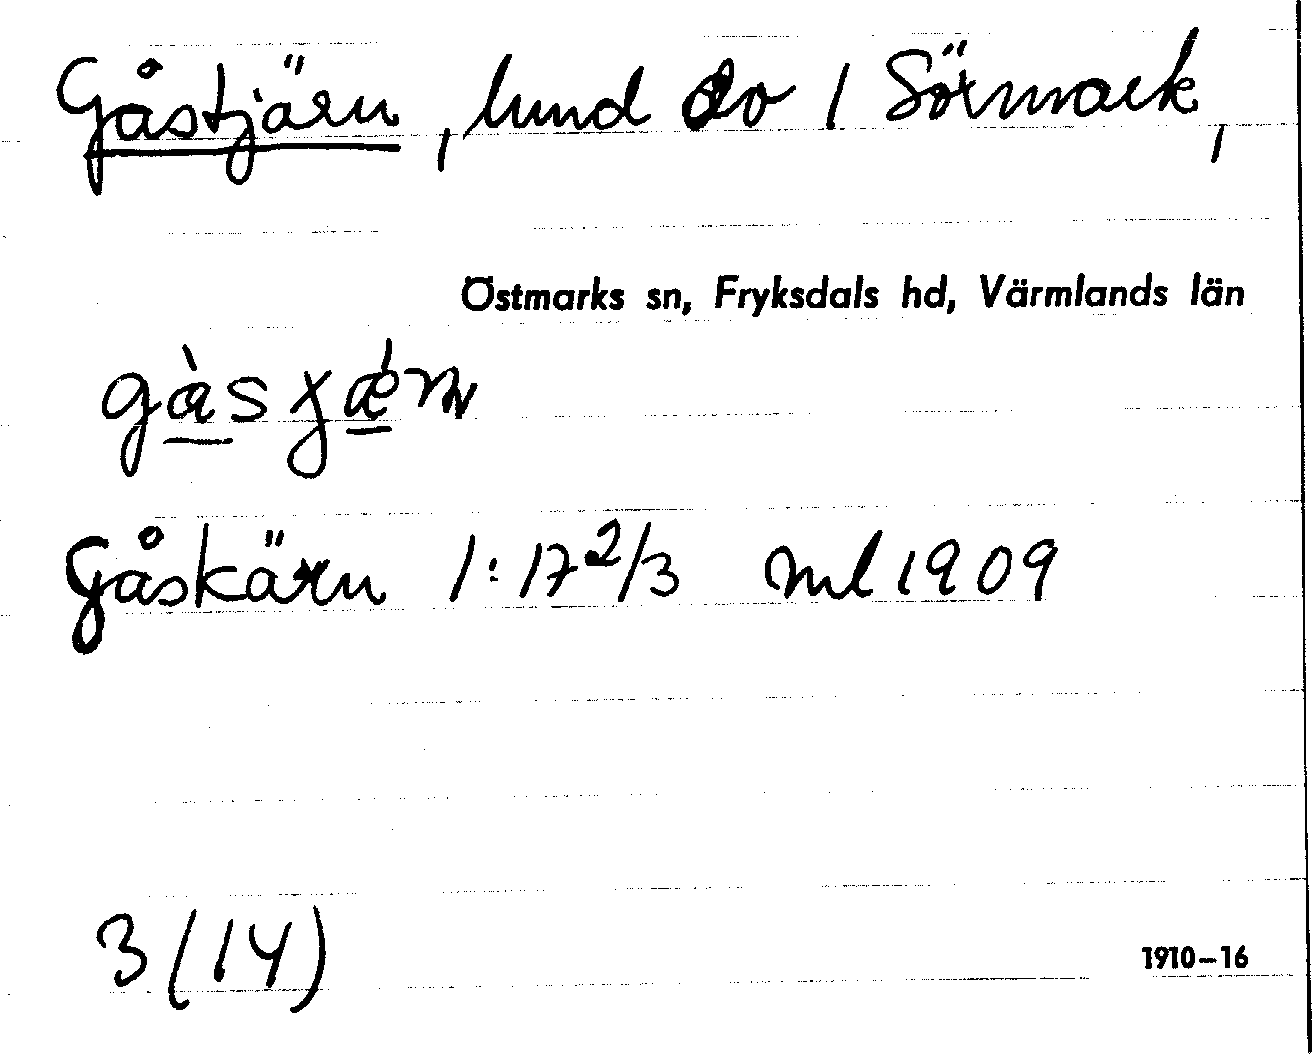 Gåstjärn, lund av 1 Sörmark,
Östmarks sn, Fryksdals hd, Värmlands län
Gåskärn 1:17 2/3 ml 1909
3 (14)
1910–16